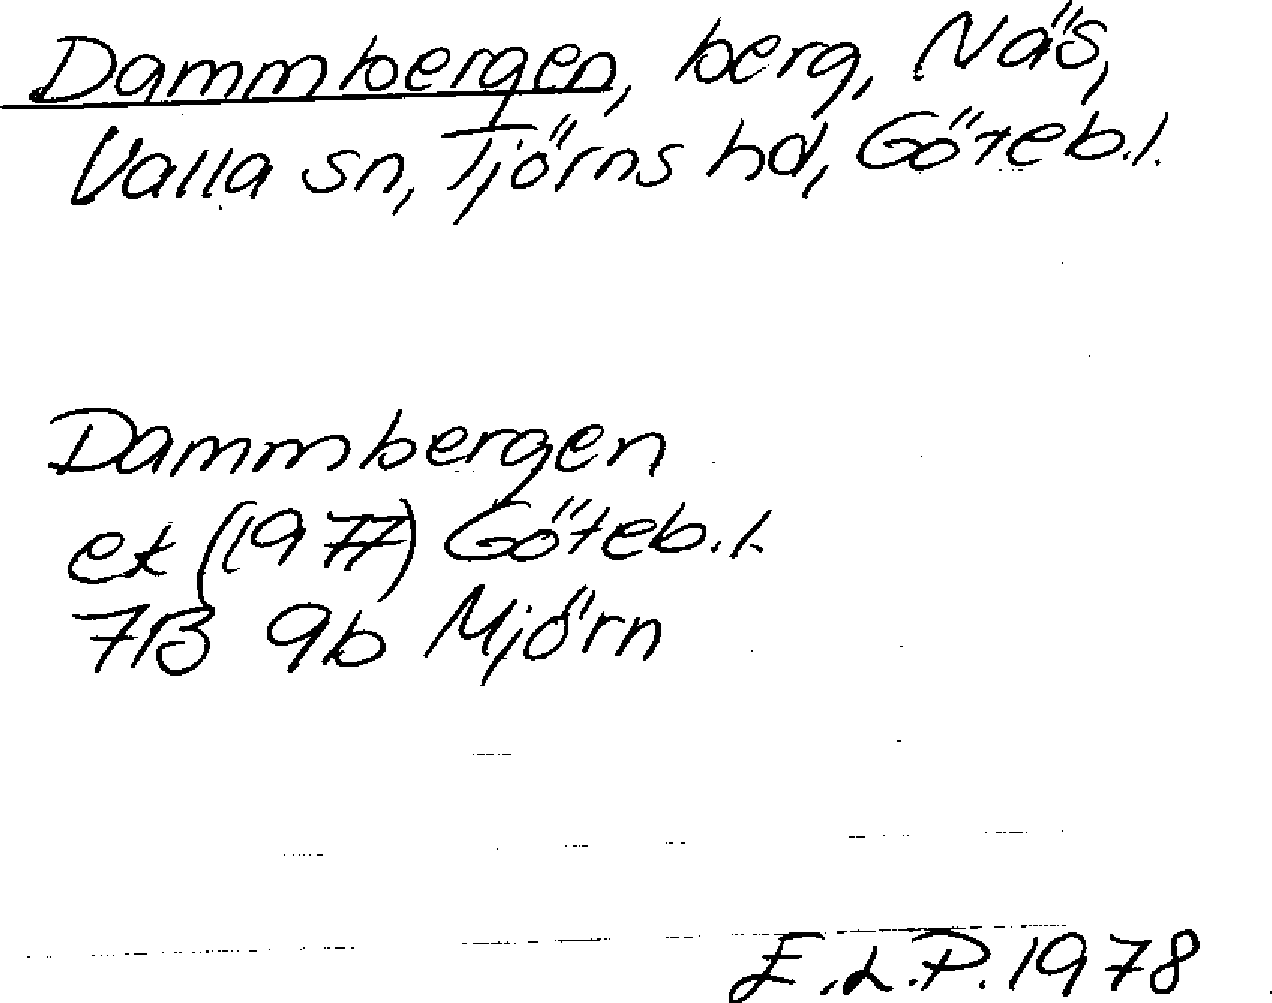 Dammbergen, berg, Näs,
Valla sn, Tjörns hd, Göteb.l.
Dammbergen
ek (1977) Göteb.l.
7B 9b Mjörn
E.L.P. 1978